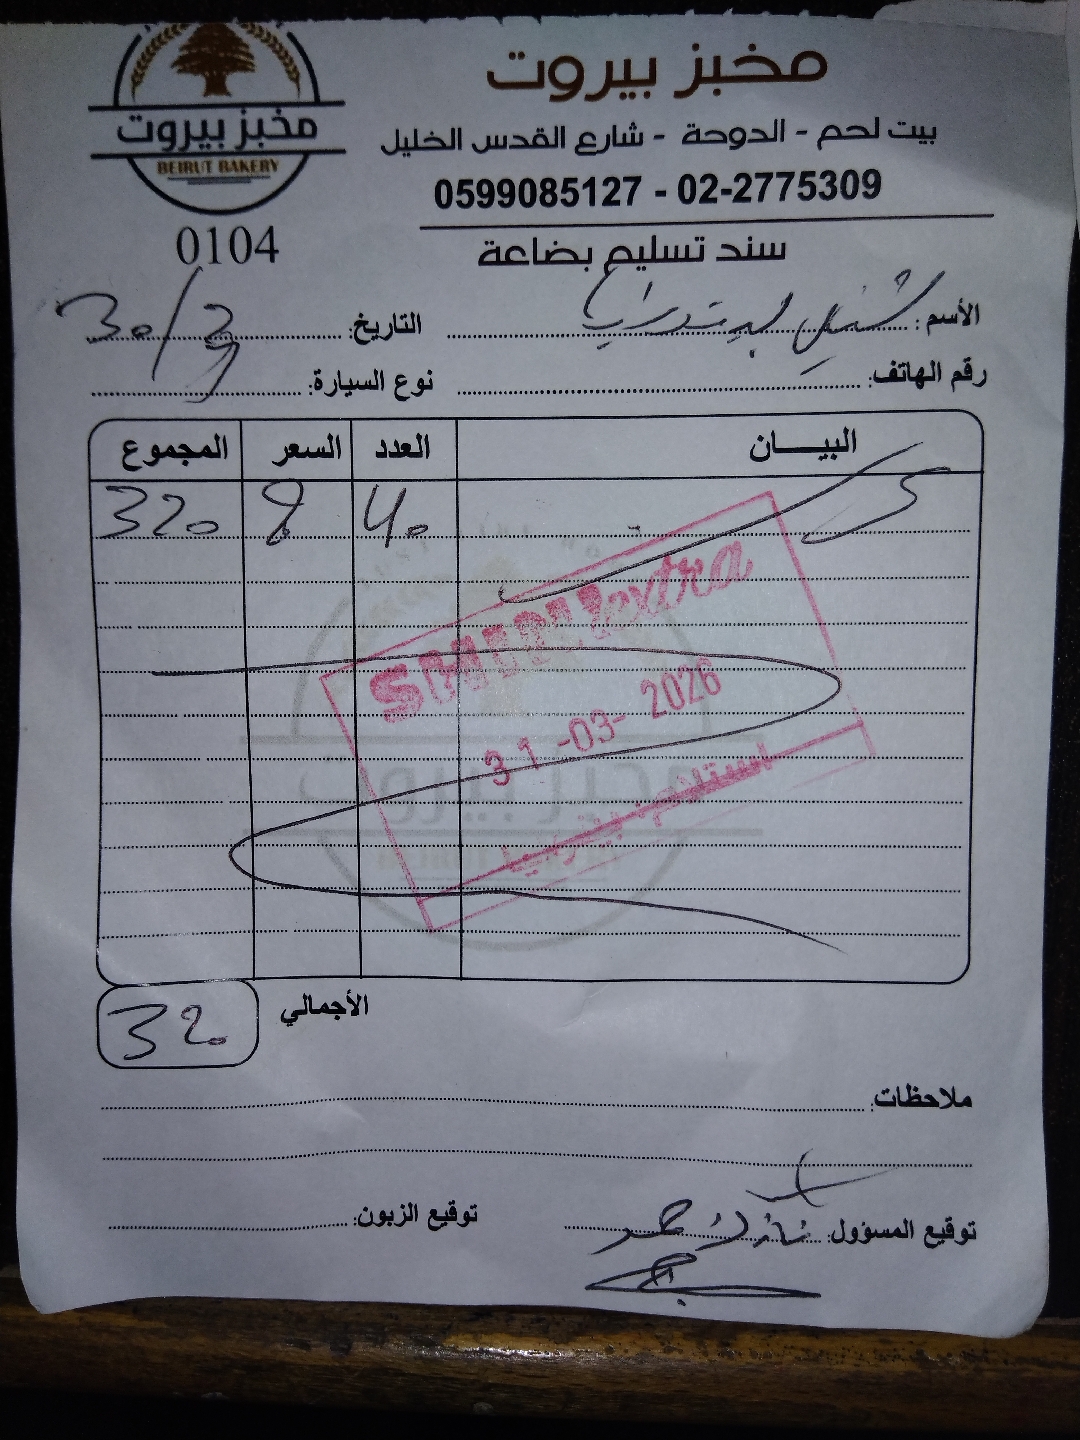 مخبز بيروت
BEIRUT BAKERY
0104
مخبز بيروت
بيت لحم - الدوحة - شارع القدس الخليل
0599085127 - 02-2775309
سند تسليم بضاعة
الأسم: التاريخ: 30/3
رقم الهاتف: نوع السيارة:
البيـــان العدد السعر المجموع
40 8 320
extra
31-03-2026
الأجمالي 320
ملاحظات:
توقيع المسؤول: توقيع الزبون: